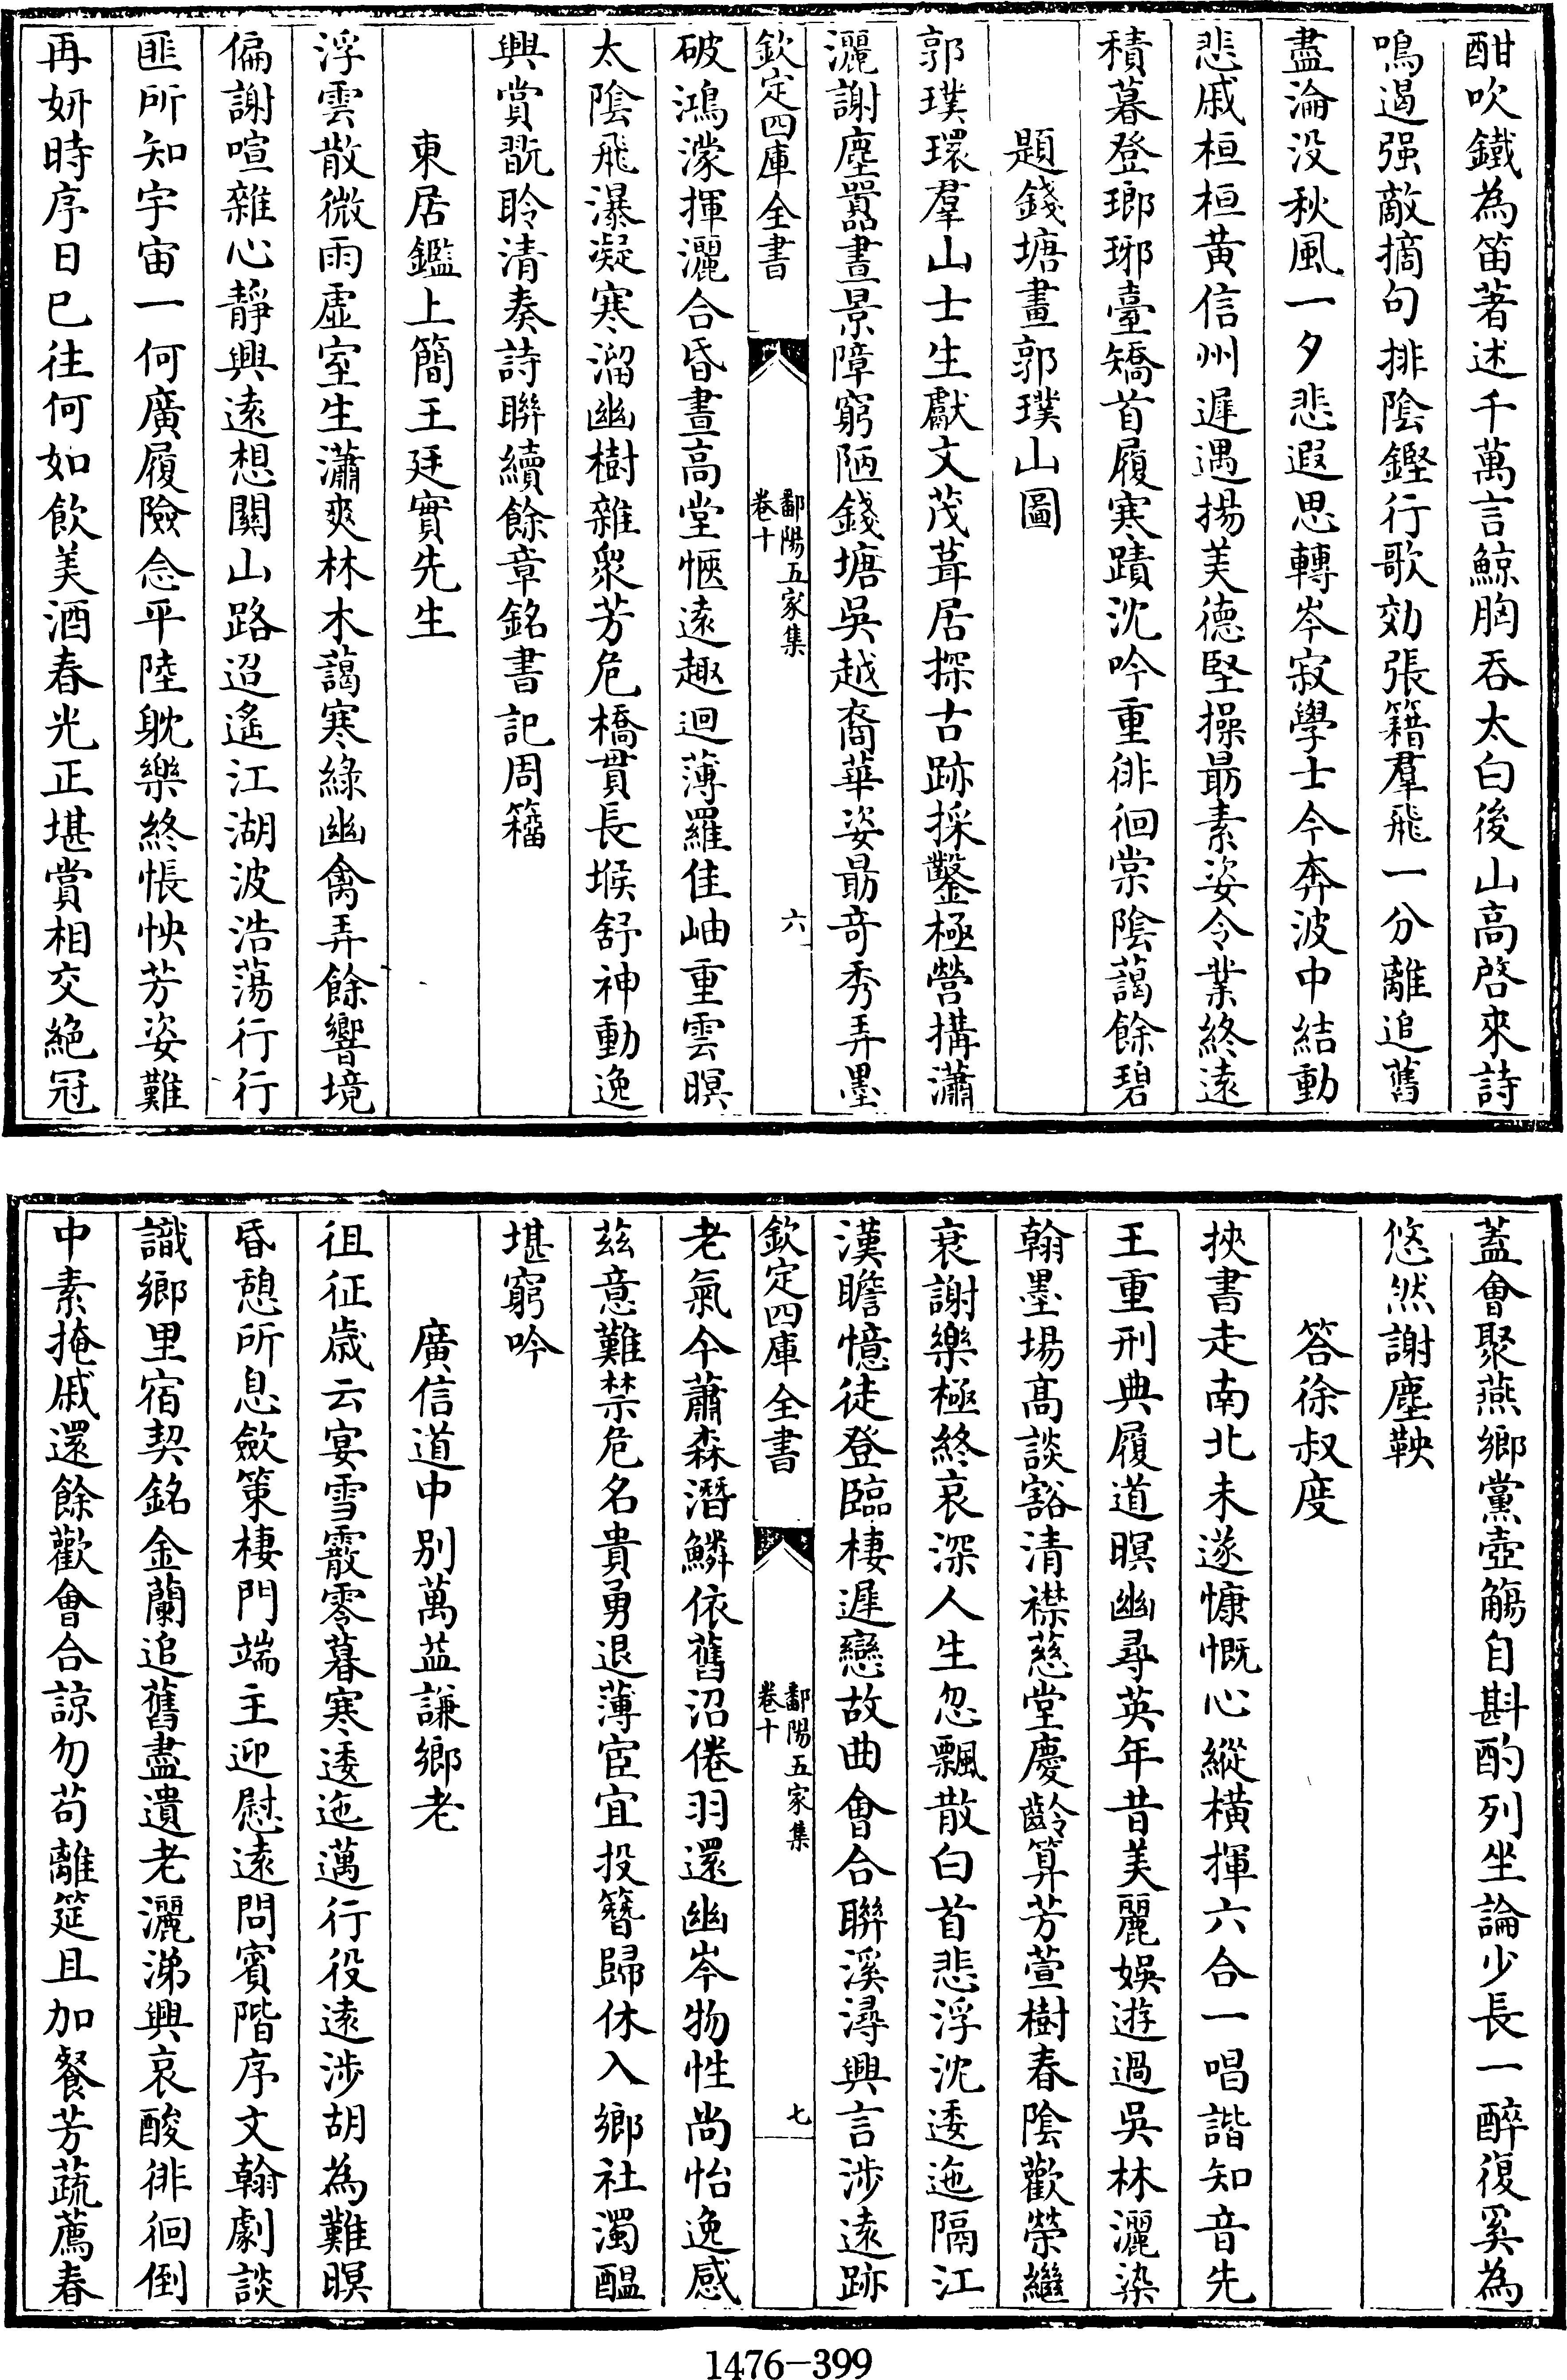 酣吹鐵為笛著述千萬言鯨胸吞太白後山高啓來詩
鳴遏强敵摘句排陰鏗行歌効張籍羣飛一分離追舊
盡淪没秋風一夕悲遐思轉岑寂學士今奔波中結動
悲戚桓桓黃信州遲遇揚美德堅操最素姿令業終遠
積暮登瑯琊臺矯首履寒蹟沈吟重徘徊棠陰藹餘碧
題錢塘畫郭璞山圖
郭璞環羣山士生獻文茂葺居探古跡採鑿極營搆瀟
灑謝塵囂晝景障窮陋錢塘吳越裔華姿最奇秀弄墨
欽定四庫全書
鄱陽五家集
卷十
六
破鴻濛揮灑合昏晝高堂愜遠趣迴薄羅佳岫重雲暝
太陰飛瀑凝寒溜幽樹雜衆芳危橋貫長堠舒神動逸
興賞翫聆清奏詩聯續餘章銘書記周籀
東居鑑上簡王廷實先生
浮雲散微雨虚室生瀟爽林木藹寒綠幽禽弄餘響境
偏謝喧雜心靜興遠想關山路迢遙江湖波浩蕩行行
匪所知宇宙一何廣履險念平陸躭樂終悵怏芳姿難
再妍時序日已往何如飲美酒春光正堪賞相交絶冠
蓋會聚燕鄉黨壺觴自斟酌列坐論少長一醉復奚為
悠然謝塵鞅
答徐叔度
挾書走南北未遂慷慨心縱橫揮六合一唱諧知音先
王重刑典履道暝幽尋英年昔美麗娛遊過吳林灑染
翰墨場髙談豁清襟慈堂慶齡算芳萱樹春陰歡榮繼
衰謝樂極終哀深人生忽飄散白首悲浮沈逶迤隔江
漢瞻憶徒登臨棲遲戀故曲會合聯溪潯興言涉遠跡
欽定四庫全書
鄱陽五家集
卷十
七
老氣今蕭森潛鱗依舊沼倦羽還幽岑物性尚怡逸感
茲意難禁危名貴勇退薄宦宜投簪歸休入鄉社濁醖
堪窮吟
廣信道中别萬益謙鄉老
徂征歲云宴雪霰零暮寒逶迤邁行役遠涉胡為難暝
昏憩所息斂策棲門端主迎慰遠問賓階序文翰劇談
識鄉里宿契銘金蘭追舊盡遺老灑涕興哀酸徘徊倒
中素掩戚還餘歡會合諒勿苟離筵且加餐芳蔬薦春
1476-399